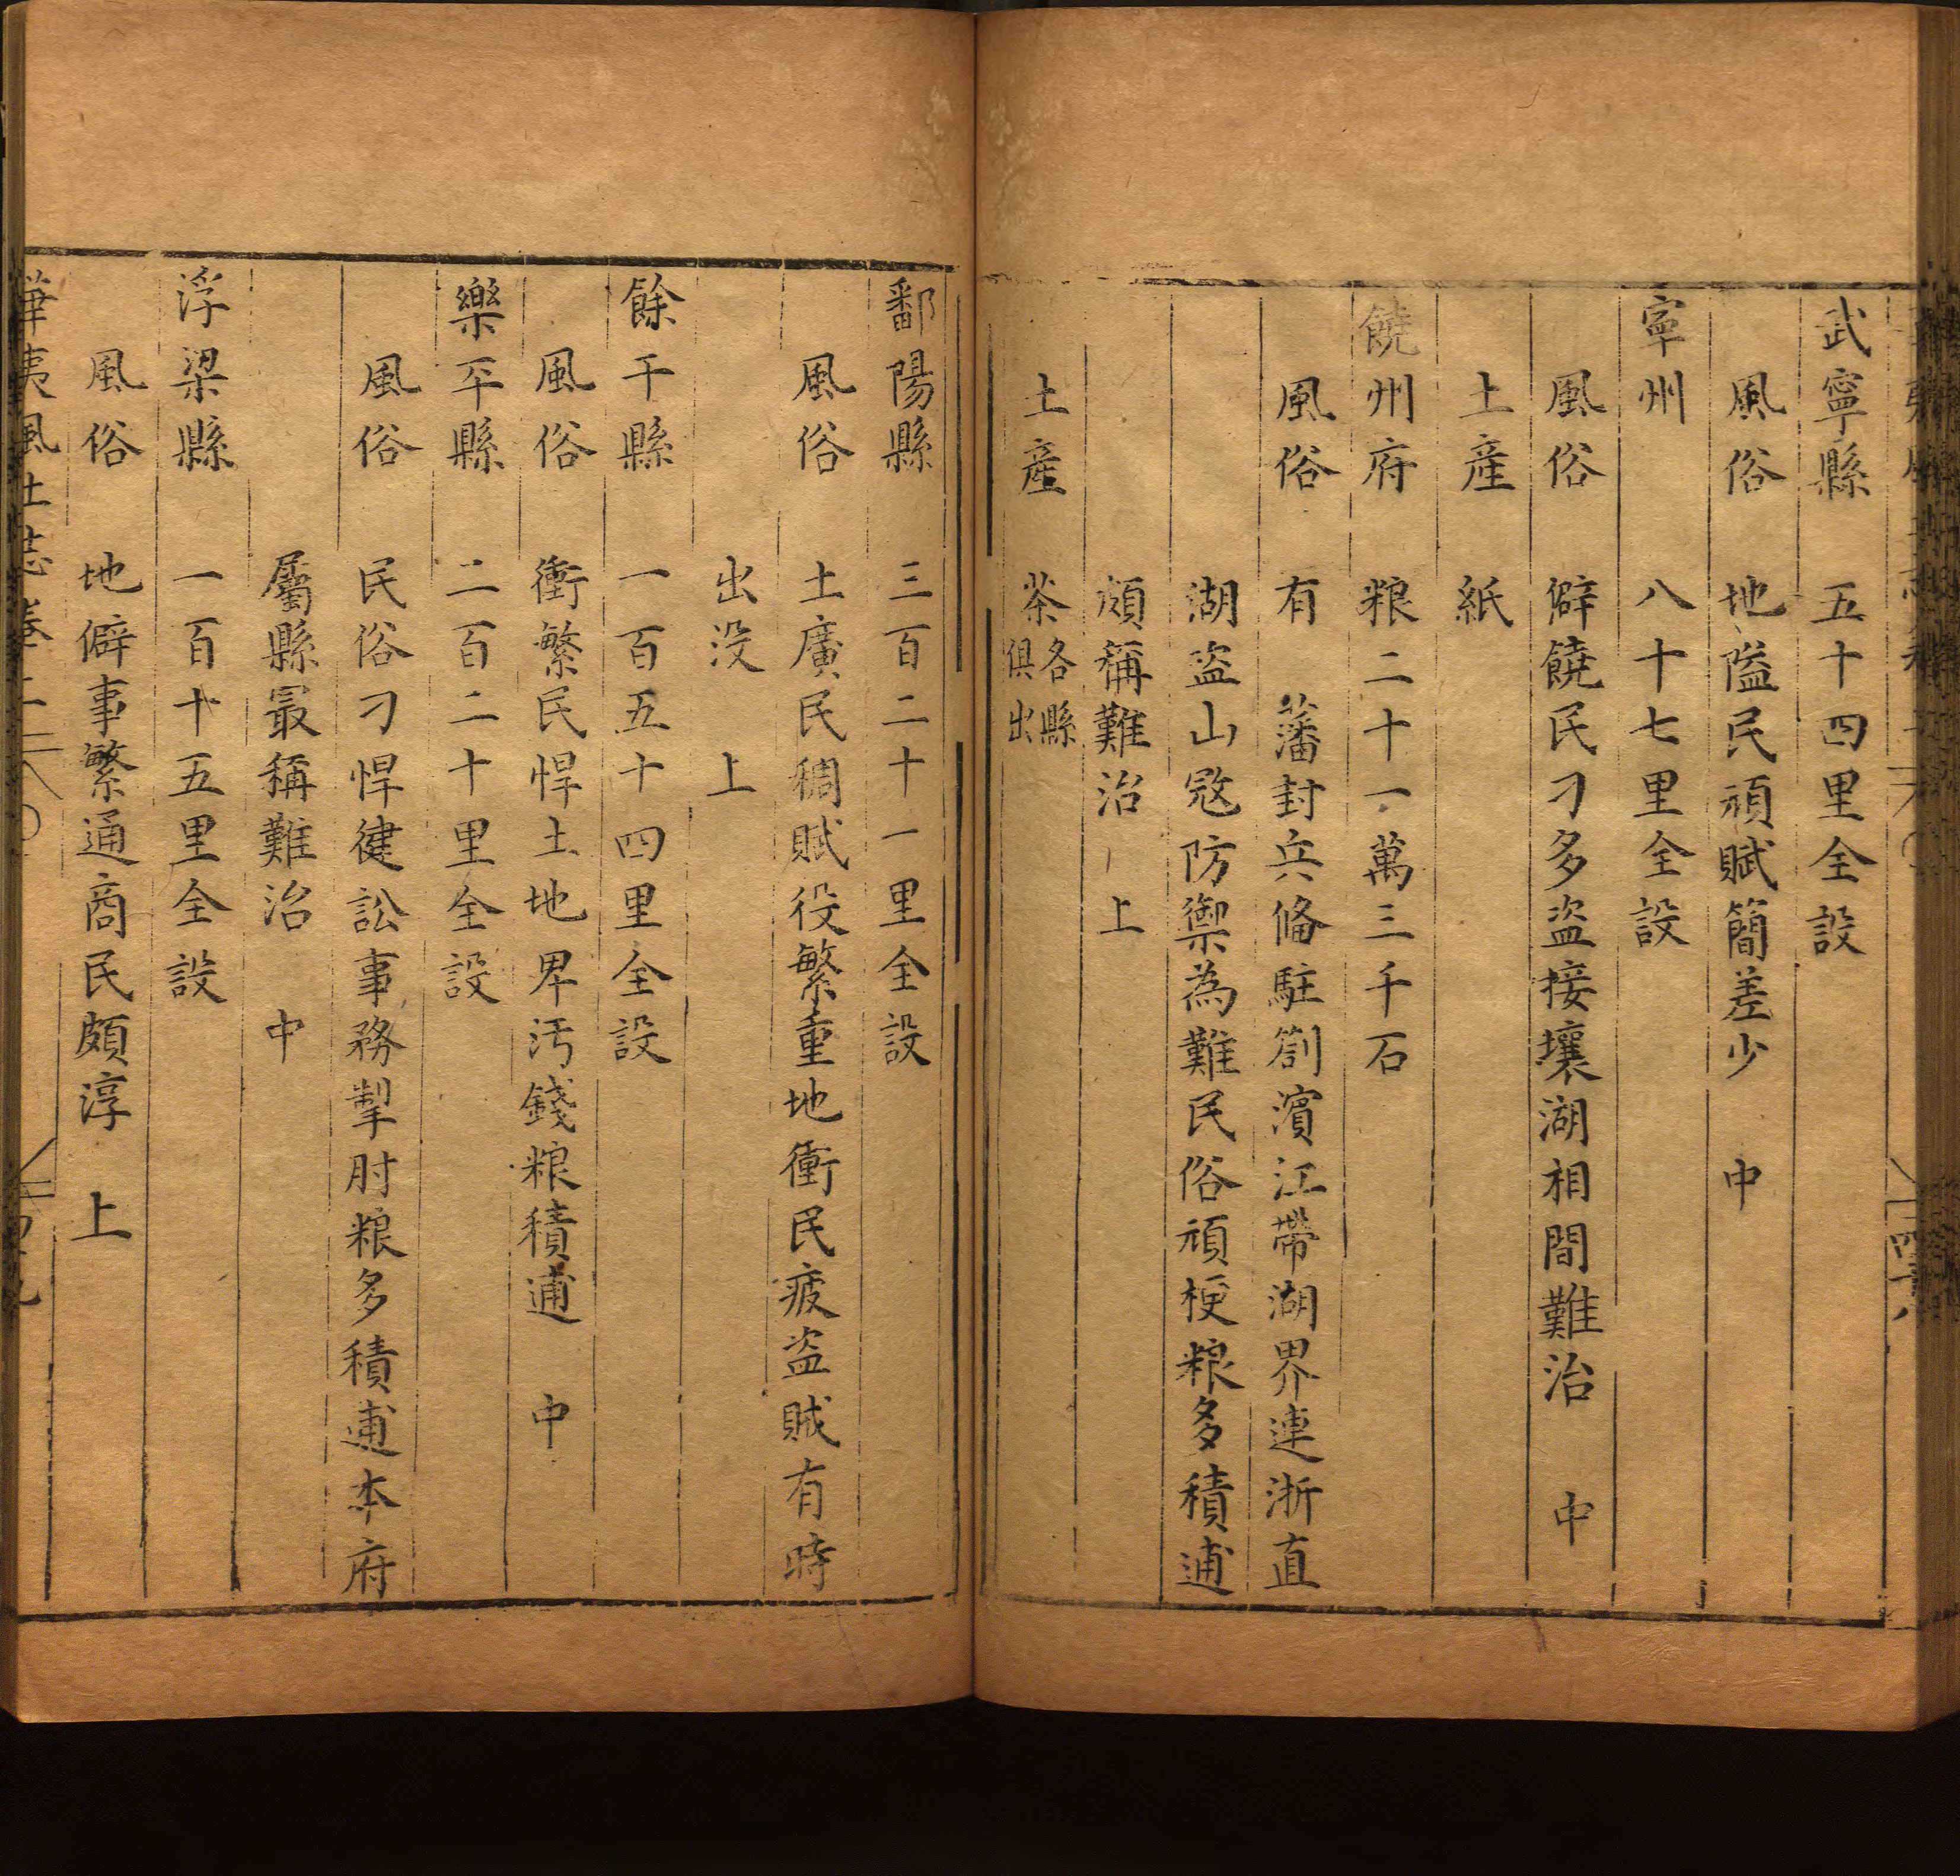 武寧縣 五十四里全設
風俗 地隘民頑賦簡差少 中
寧州 八十七里全設
風俗 僻饒民刁多盗接壤湖相間難治 中
土產 紙
饒州府 粮二十一萬三千石
風俗 有 藩封兵俻駐劄濱江帶湖界連浙直
湖盗山㓂防禦為難民俗頑梗粮多積逋
頗稱難治 上
土產 茶各縣俱出
鄱陽縣 三百二十一里全設
風俗 土廣民稠賦役繁重地衝民疲盗賊有時
出没 上
餘干縣 一百五十四里全設
風俗 衝繁民悍土地卑汚錢粮積逋 中
樂平縣 二百二十里全設
風俗 民俗刁悍健訟事務掣肘粮多積逋本府
屬縣最稱難治 中
浮梁縣 一百十五里全設
風俗 地僻事繁通商民頗淳 上
華夷風土志卷二